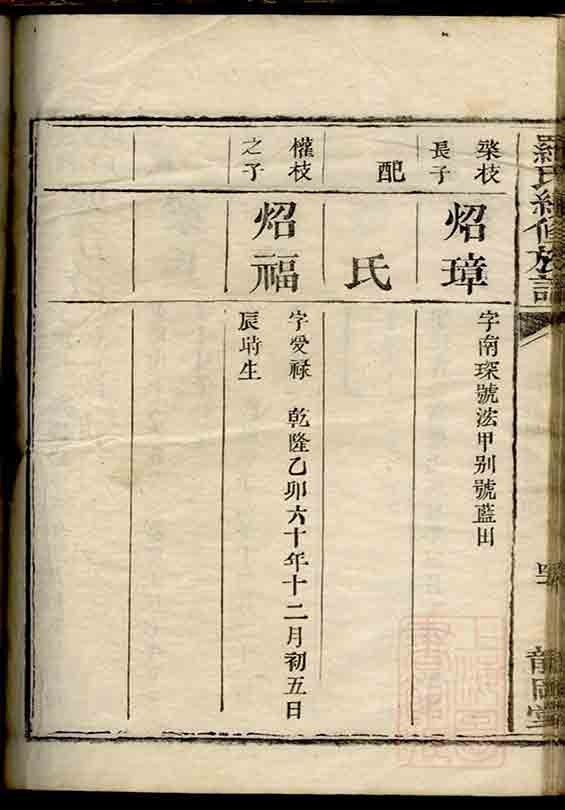 羅氏續修族譜
龍岡堂
榮枝
長子
炤璋
字南琛號浤甲别號藍田
配
氏
權枝
之子
炤福
字爱祿 乾隆乙卯六十年十二月初五日
辰時生